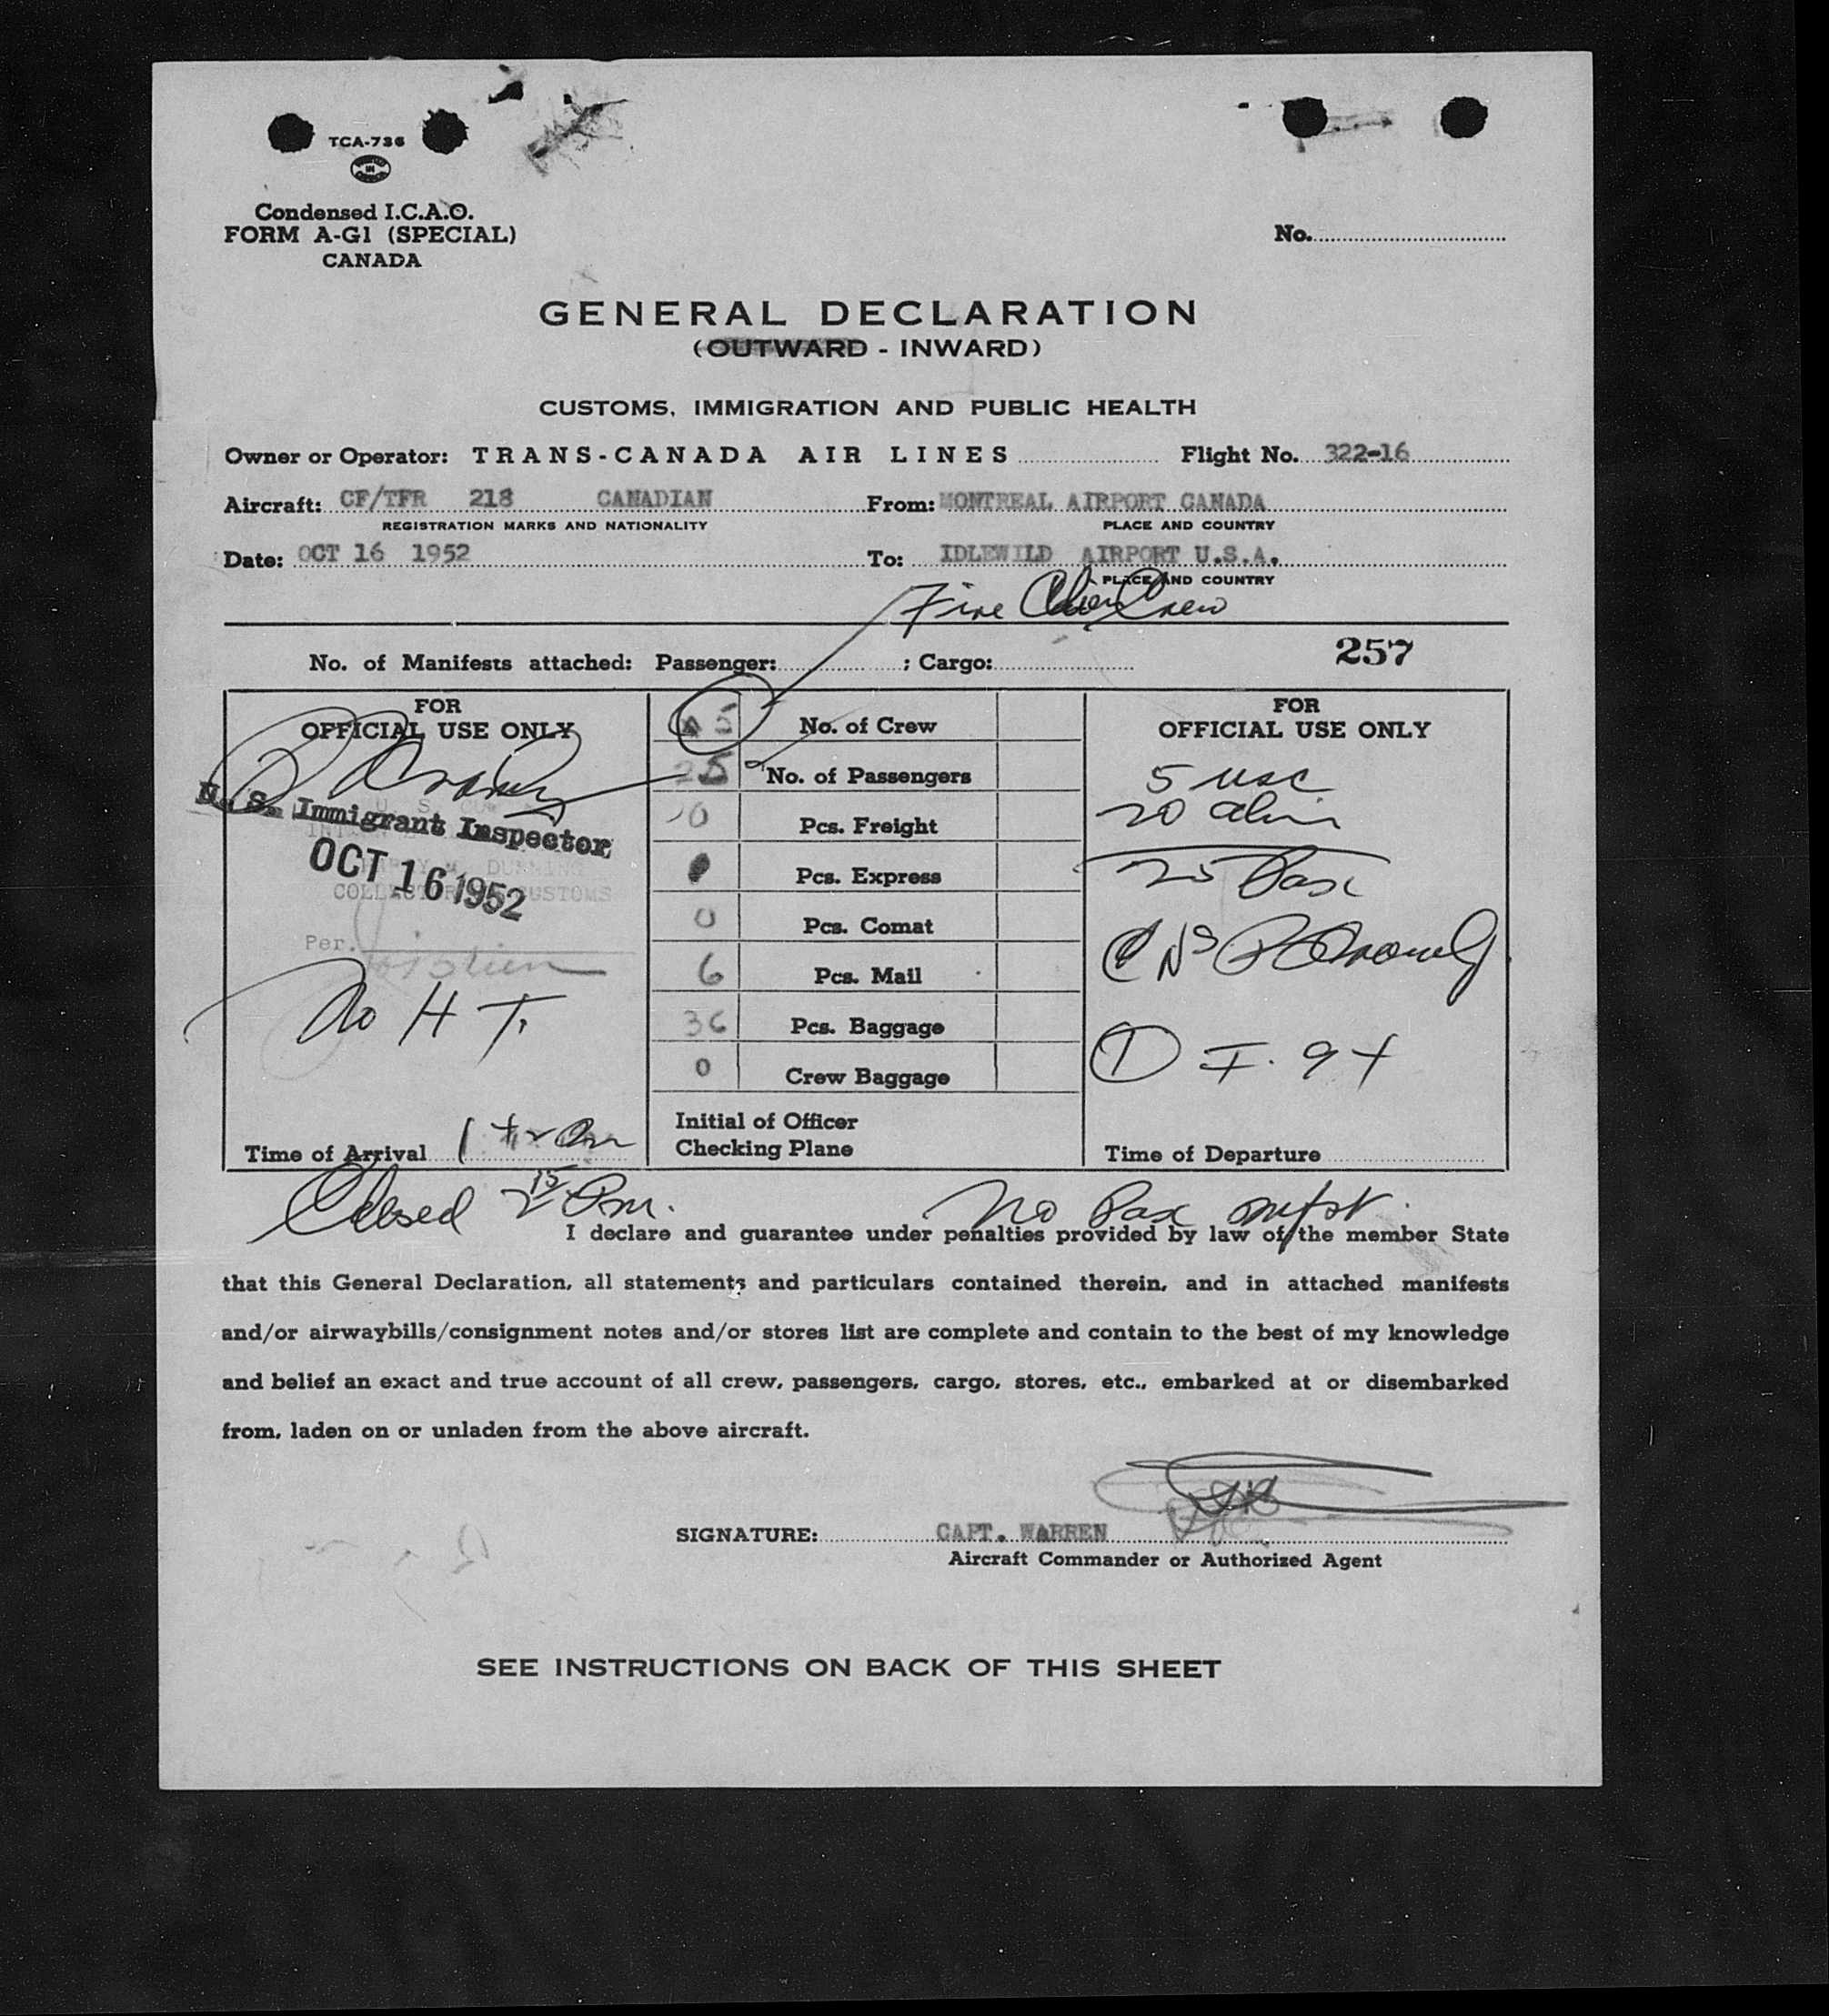 TCA-736
PRINTED IN CANADA
Condensed I.C.A.O.
FORM A-G1 (SPECIAL)
CANADA
No.
GENERAL DECLARATION
(OUTWARD - INWARD)
CUSTOMS, IMMIGRATION AND PUBLIC HEALTH
Owner or Operator: TRANS-CANADA AIR LINES Flight No. 322-16
Aircraft: CF/TFR 218 CANADIAN From: MONTREAL AIRPORT CANADA
REGISTRATION MARKS AND NATIONALITY PLACE AND COUNTRY
Date: OCT 16 1952 To: IDLEWILD AIRPORT U.S.A.
PLACE AND COUNTRY
Five Alien Crew
No. of Manifests attached: Passenger: ; Cargo: 257
FOR
OFFICIAL USE ONLY
U. S. Immigrant Inspector
OCT 16 1952
COLLECTOR CUSTOMS
Per.
No H T.
Time of Arrival 1 42 Pm
5 No. of Crew
25 No. of Passengers
0 Pcs. Freight
Pcs. Express
0 Pcs. Comat
6 Pcs. Mail
36 Pcs. Baggage
0 Crew Baggage
Initial of Officer
Checking Plane
FOR
OFFICIAL USE ONLY
5 USC
20 alien
25 Pax
1 I. 94
Time of Departure
Closed 2 15 Pm. No Pax mfst.
I declare and guarantee under penalties provided by law of the member State
that this General Declaration, all statements and particulars contained therein, and in attached manifests
and/or airwaybills/consignment notes and/or stores list are complete and contain to the best of my knowledge
and belief an exact and true account of all crew, passengers, cargo, stores, etc., embarked at or disembarked
from, laden on or unladen from the above aircraft.
SIGNATURE: CAPT. WARREN
Aircraft Commander or Authorized Agent
SEE INSTRUCTIONS ON BACK OF THIS SHEET